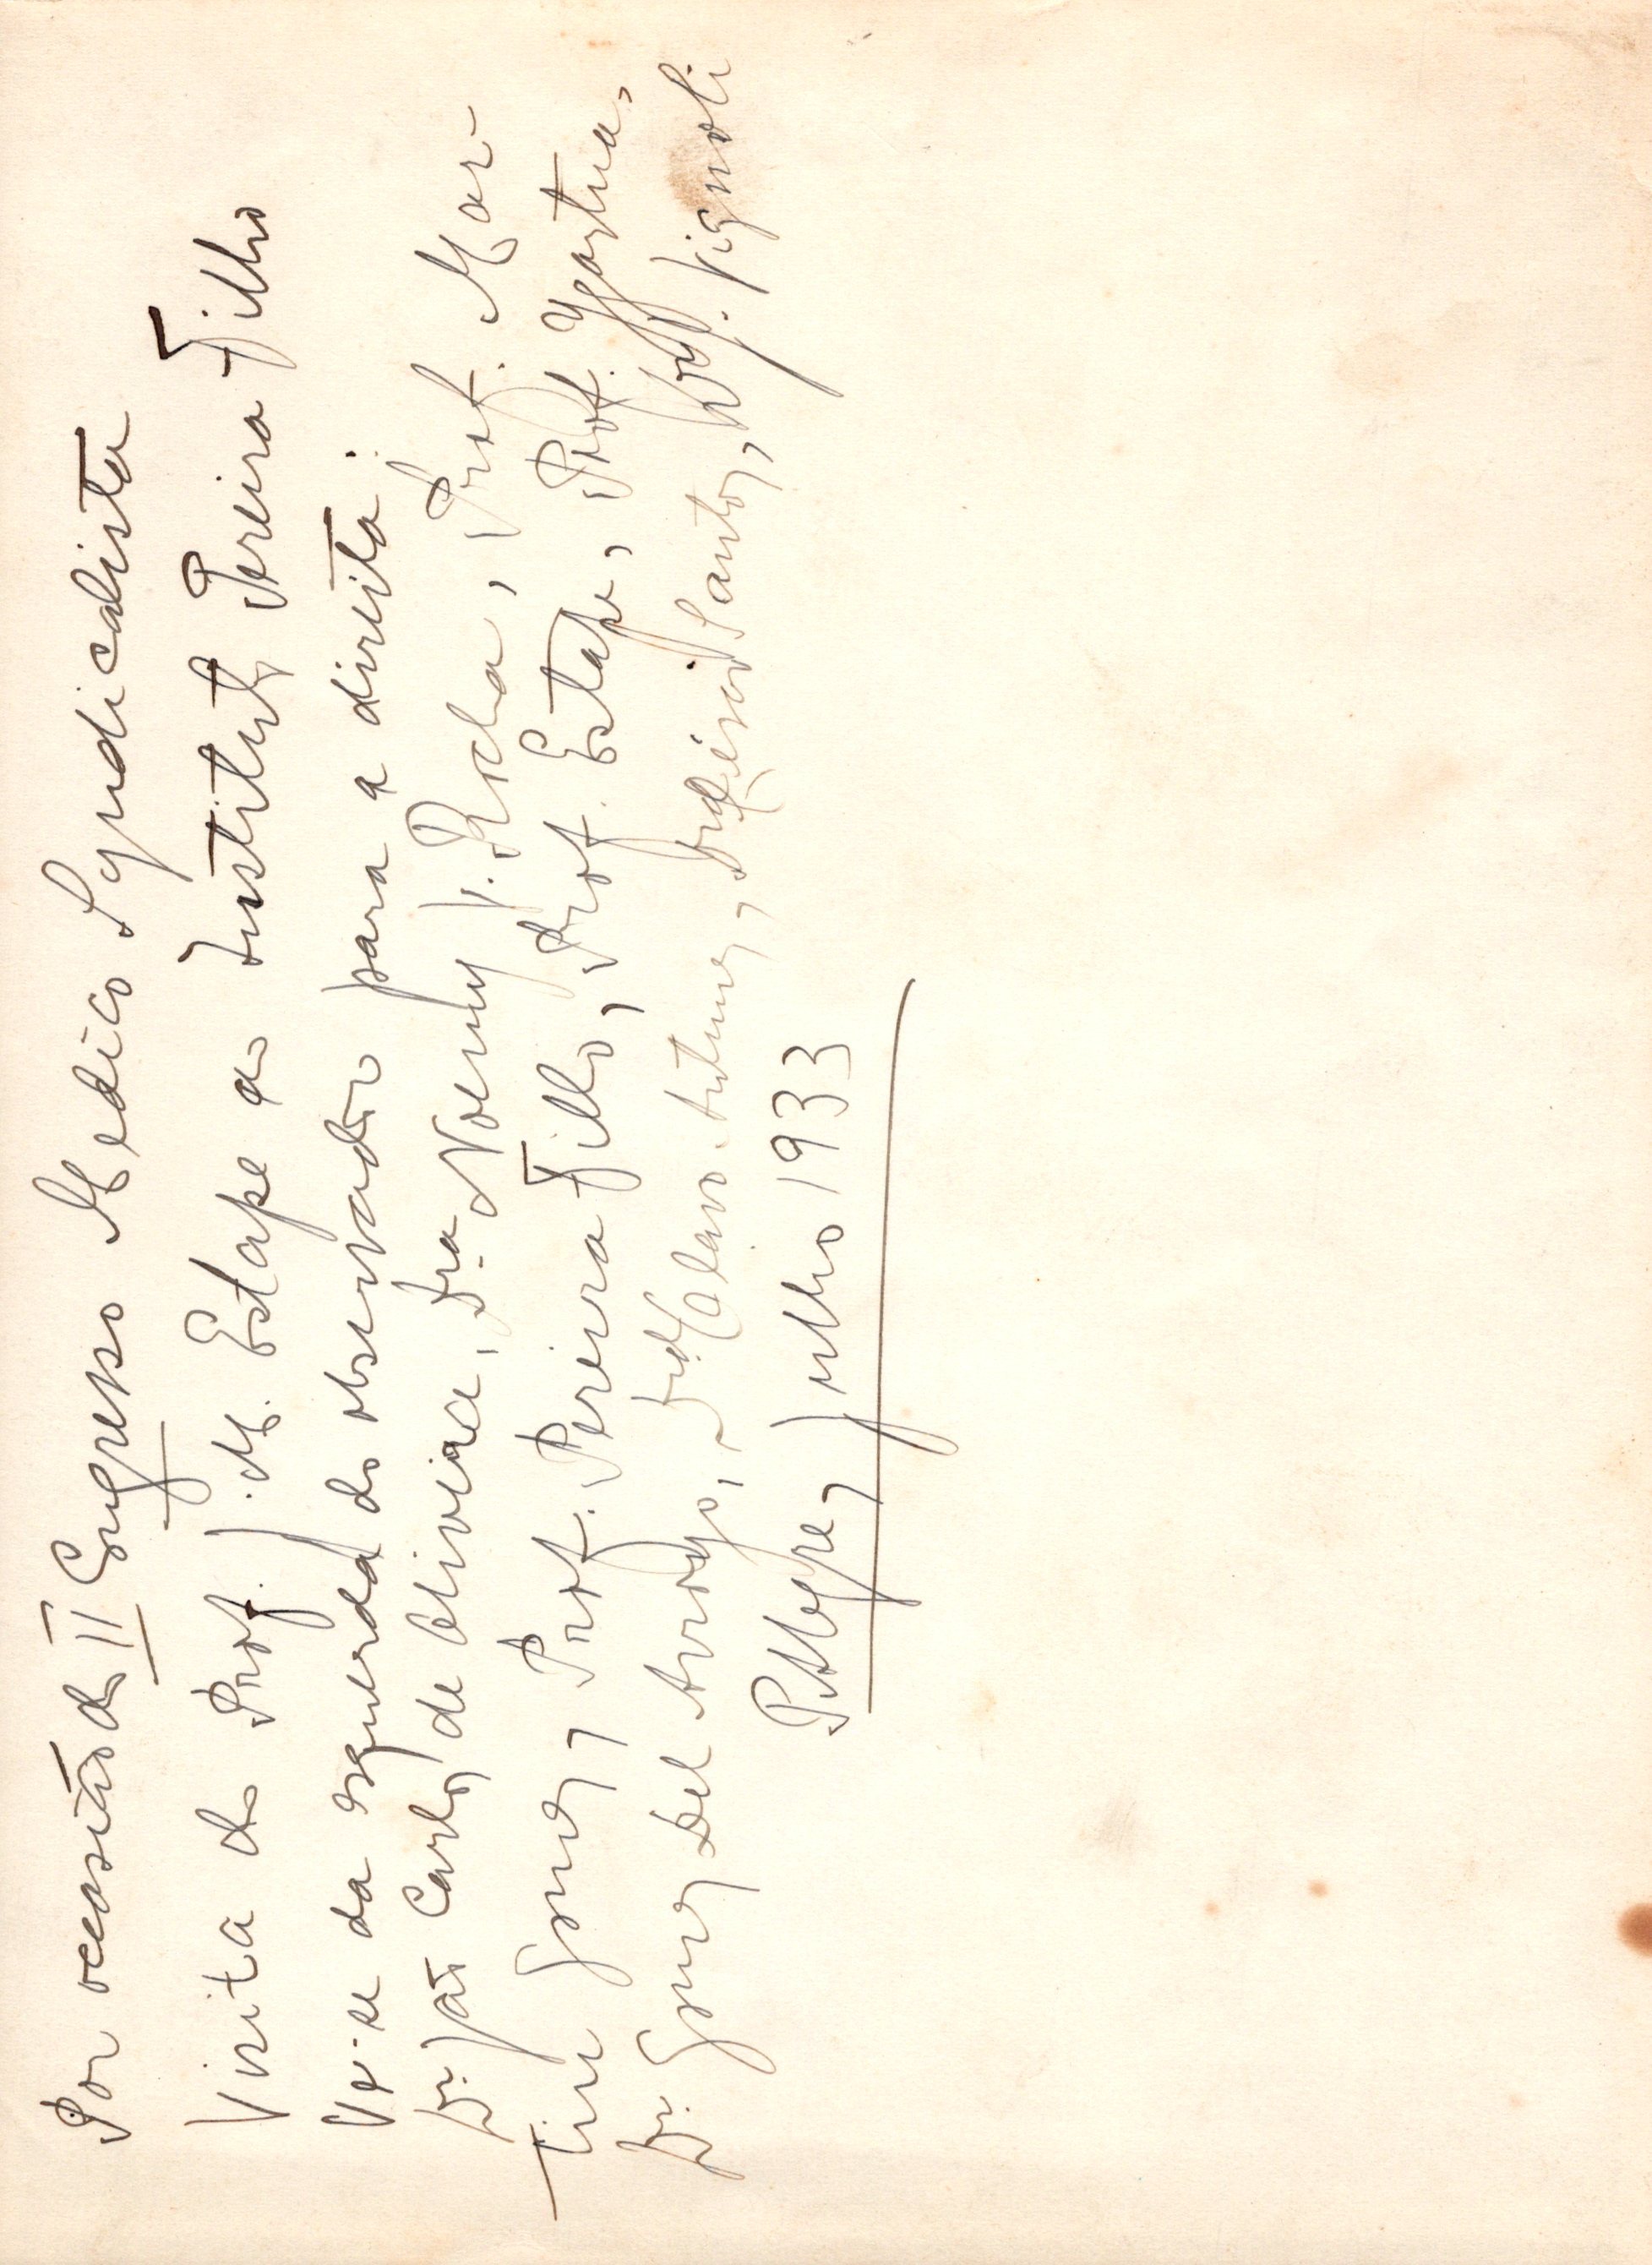 Por occasião do II Congresso Medico Syndicalista
Visita do Prof. J. M. Estape ao Instituto Pereira Filho
Ve-se da esquerda do observador para a direita:
Dr. João Carlos de Oliveira, Dra Noemy V. Rocha, Prof. Mar-
tim Gomes, Prof. Pereira Filho, Prof. Estape, Prof. Ygartua,
Dr. Gomes Del Arroyo, Olavo Antunes, Santos, Vignoli
P. Alegre, Julho 1933